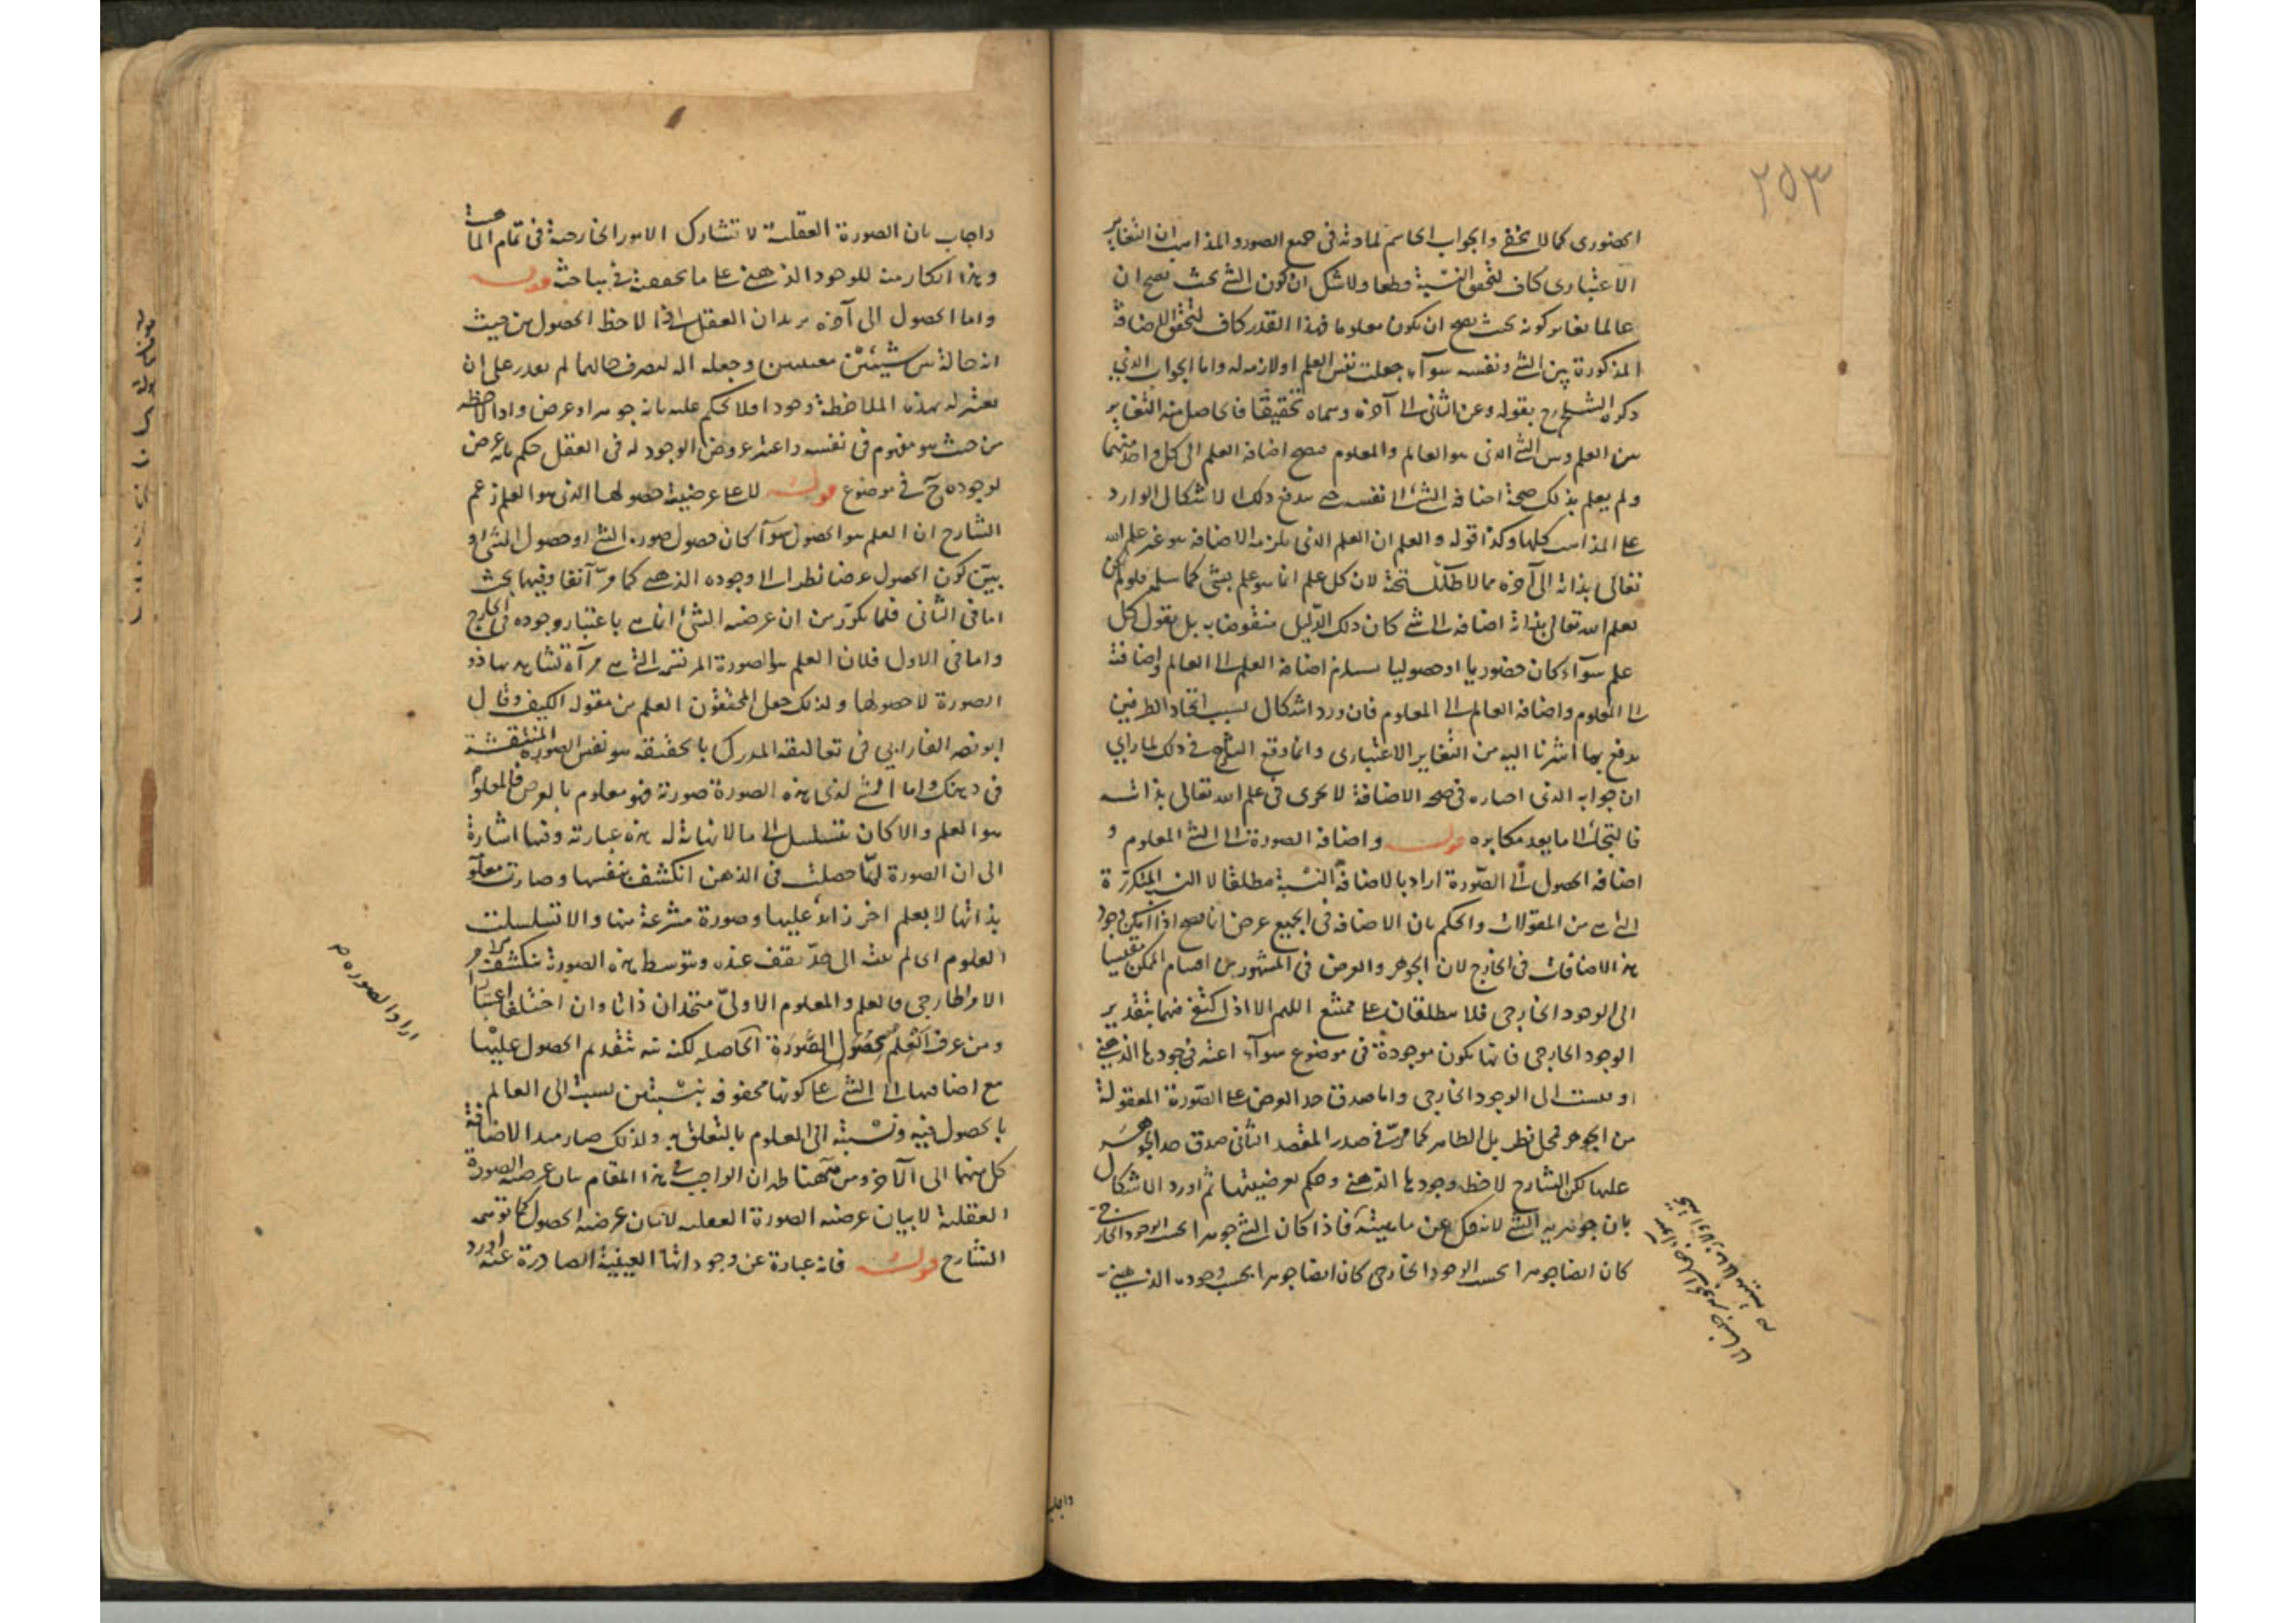 ٢٥٣
الحضورى كما لا يخفى والجواب الحاسم لمادته فى جميع الصور والمذاهب ان التغاير
الاعتبارى كاف لتحقق النسبة قطعا ولا شك ان كون الشئ بحيث يصح ان
عالما يغاير كونه بحيث يصح ان يكون معلوما فهذا القدر كاف لتحقق الاضافة
المذكورة بين الشئ ونفسه سوآء جعلت نفس العلم او لازمه له واما الجواب الذى
ذكره الشارح بقوله وعن الثانى الى آخره وسماه تحقيقا فالحاصل منه التغاير
بين العلم وبين الشئ الذى هو العالم والمعلوم فيصح اضافة العلم الى كل واحد منهما
ولم يعلم بذلك صحة اضافة الشئ الى نفسه حتى يندفع ذلك الاشكال الوارد
على المذاهب كلها وكذا قوله والعلم ان العلم الذى يلزمه الاضافة هو غير علم الله
تعالى بذاته الى آخره مما لا طائل تحته لان كل علم انما هو علم بشئ كما سلم فلو لم يكن
لعلم الله تعالى بذاته اضافة الى شئ كان ذلك الدليل منقوضا به بل نقول كل
علم سوآء كان حضوريا او حصوليا يستلزم اضافة العلم الى العالم واضافته
الى المعلوم واضافة العالم الى المعلوم فان ورد اشكال بسبب اتحاد الطرفين
يدفع بما اشرنا اليه من التغاير الاعتبارى وانما وقع الشارح فى ذلك لما رأى
ان جوابه الذى اختاره فى صحة الاضافة لا يجرى فى علم الله تعالى بذاته
فالتجأ الى ما يعد مكابره قوله واضافة الصورة الى الشئ المعلوم و
اضافة الحصول الى الصورة اراد بالاضافة النسبة مطلقا لا النسبة المتكررة
التى هى من المقولات والحكم بان الاضافة فى الجميع عرض انما يصح اذا امكن وجود
هذه الاضافات فى الخارج لان الجوهر والعرض فى المشهور من اقسام الممكن مقيسا
الى الوجود الخارجى فلا يطلقان على ممتنع اللهم الا اذا اكتفى فيهما بتقدير
الوجود الخارجى فانها يكون موجودة فى موضوع سوآء اعتبر فى وجودها الذهنى
او قيست الى الوجود الخارجى واما صدق حد العرض على الصورة المعقولة
من الجوهر فمحل نظر بل الظاهر كما مر فى صدر المقصد الثانى صدق حد الجوهر
عليها لكن الشارح لاحظ وجودها الذهنى وحكم بعرضيتها ثم اورد الاشكال
بان جوهرية الشئ لا تنفك عن ماهيته فاذا كان الشئ جوهرا بحسب الوجود الخارجى
كان ايضا جوهرا بحسب الوجود الخارجى كان ايضا جوهرا بحسب وجوده الذهنى
واجاب بان الصورة العقلية لا تشارك الامور الخارجية فى تمام الماهية
وهذا انكار منه للوجود الذهنى على ما تحققته فى مباحثه قوله
واما الحصول الى آخره يريد ان العقل اذا لاحظ الحصول من حيث
انه حالة بين شيئين معينين وجعله آلة لتعرف حالهما لم يقدر على ان
يعتبر له بهذه الملاحظة وجودا فلا يحكم عليه بانه جوهر او عرض واذا لاحظه
من حيث هو مفهوم فى نفسه واعتبر عروض الوجود له فى العقل حكم بانه عرض
لوجوده ح فى موضوع قوله لا على عرضية حصولها الذى هو العلم زعم
الشارح ان العلم هو الحصول سوآء كان حصول صورة الشئ او حصول الشئ و
بين كون الحصول عرضا نظرا الى وجوده الذهنى كما مر آنفا وفيهما بحث
اما فى الثانى فلما تكرر من ان عرضية الشئ انما هى باعتبار وجوده فى الخارج
واما فى الاول فلان العلم هو الصورة المرتسمة التى هى مرآة تشاهد بها ذو
الصورة لا حصولها ولذلك جعل المحققون العلم من مقولة الكيف وقال
ابو نصر الفارابى فى تعاليقه المدرك بالحقيقة هو نفس الصورة المنتقشة
فى ذهنك واما الشئ الذى هذه الصورة صورته فهو معلوم بالعرض فالمعلوم
هو العلم والا كان يتسلسل الى ما لا نهاية له هذه عبارته وفيها اشارة
الى ان الصورة لما حصلت فى الذهن انكشفت بنفسها وصارت معلومة
بذاتها لا بعلم اخر زائد عليها وصورة منتزعة منها والا تسلسلت
العلوم اى لم تنته الى حد تقف عنده وبتوسط هذه الصورة ينكشف
الامر الخارجى فالعلم والمعلوم الاولى متحدان ذاتا وان اختلفا اعتبارا
ومن عرف العلم بحصول الصورة الحاصلة لكنه نبه بتقديم الحصول عليها
مع اضافتها الى الشئ على كونها محفوفة بنسبتين نسبة الى العالم
بالحصول فيه ونسبة الى المعلوم بالتعلق به ولذلك صار مبدا لاضافة
كل منهما الى الآخر ومن ههنا ظهر ان الواجب فى هذا المقام بيان عرضية الصورة
العقلية لا بيان عرضية الحصول كما توهمه
الشارح قوله فانه عبارة عن وجوداتها العينية الصادرة عنه اورد
اراد الصورة صح